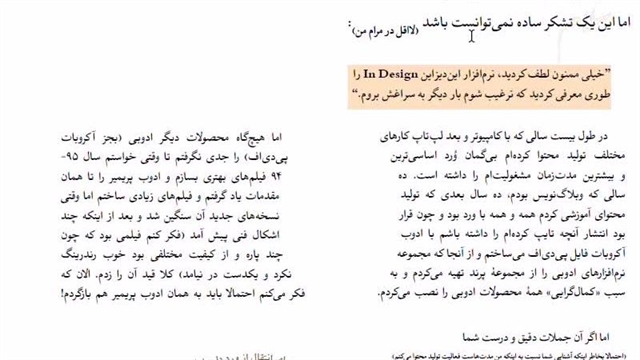 اما این یک تشکر ساده نمی‌توانست باشد (لااقل در مرام من):
”خیلی ممنون لطف کردید، نرم‌افزار این‌دیزاین In Design را
طوری معرفی کردید که ترغیب شوم بار دیگر به سراغش بروم.“
در طول بیست سالی که با کامپیوتر و بعد لپ‌تاپ کارهای
مختلف تولید محتوا کرده‌ام بی‌گمان وُرد اساسی‌ترین
و بیشترین مدت‌زمان مشغولیت‌ام را داشته است. ده
سالی که وبلاگ‌نویس بودم، ده سال بعدی که تولید
محتوای آموزشی کردم همه و همه با ورد بود و چون قرار
بود انتشار آنچه تایپ کرده‌ام را داشته باشم با ادوب
آکروبات فایل پی‌دی‌اف می‌ساختم و از آنجا که مجموعه
نرم‌افزارهای ادوبی را از مجموعهٔ پرند تهیه می‌کردم و به
سبب «کمال‌گرایی» همهٔ محصولات ادوبی را نصب می‌کردم.
اما اگر آن جملات دقیق و درست شما
(احتمالا بخاطر اینکه آشنایی شما نسبت به اینکه من مدت‌هاست فعالیت تولید محتوا می‌کنم)
اما هیچ‌گاه محصولات دیگر ادوبی (بجز آکروبات
پی‌دی‌اف) را جدی نگرفتم تا وقتی خواستم سال ۹۵-
۹۴ فیلم‌های بهتری بسازم و ادوب پریمیر را تا همان
مقدمات یاد گرفتم و فیلم‌های زیادی ساختم اما وقتی
نسخه‌های جدید آن سنگین شد و بعد از اینکه چند
اشکال فنی پیش آمد (فکر کنم فیلمی بود که چون
چند پاره و از کیفیت مختلفی بود خوب رندرینگ
نکرد و یکدست در نیامد) کلا قید آن را زدم. الان که
فکر می‌کنم احتمالا باید به همان ادوب پریمیر هم بازگردم!